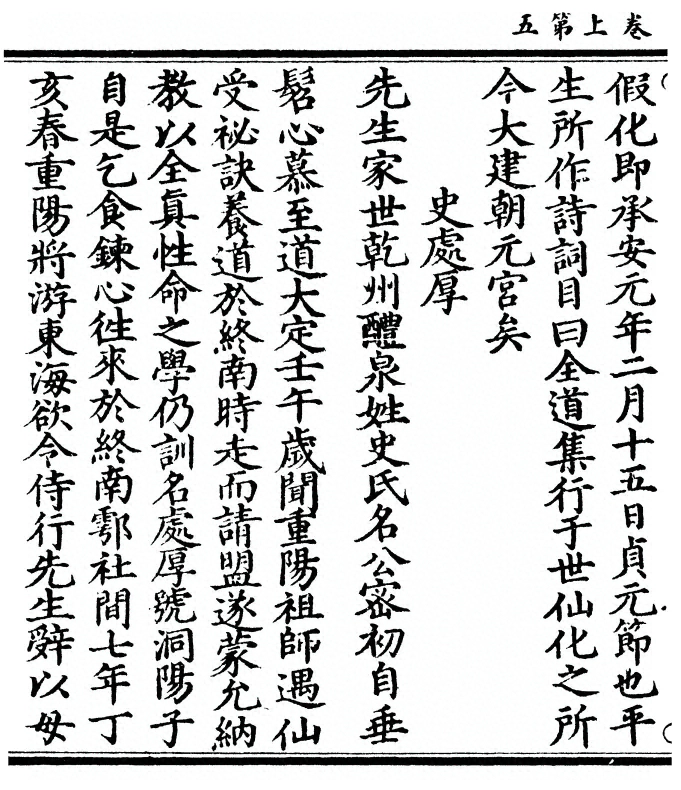 卷上第五
假化即承安元年二月十五日貞元節也平
生所作詩詞目曰全道集行于世仙化之所
今大建朝元宮矣
史處厚
先生家世乾州醴泉姓史氏名公密初自垂
髫心慕至道大定壬午歲聞重陽祖師遇仙
受祕訣養道於終南時走而請盟遂蒙允納
教以全真性命之學仍訓名處厚號洞陽子
自是乞食鍊心徃來於終南鄠社間七年丁
亥春重陽將游東海欲令侍行先生辤以母